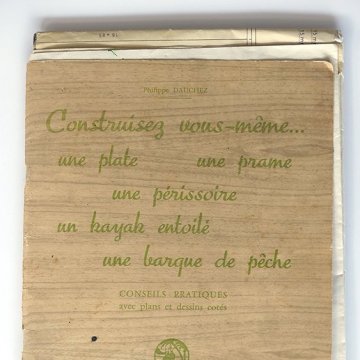 Philippe DAUCHEZ
Construisez vous-même...
une plate une prame
une périssoire
un kayak entoilé
une barque de pêche
CONSEILS PRATIQUES
avec plans et dessins cotés